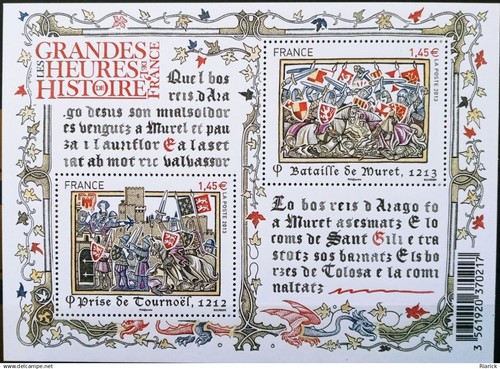 LES GRANDES
HEURES DE
L'HISTOIRE DE FRANCE
Quel bos
reis d'Ara
go desus son milsoldor
es vengutz a Murel et pau
za i l'auriflor E a laset
iat ab mot ric valvassor
FRANCE 1,45€
LA POSTE 2013
φ Bataille de Muret, 1213
FRANCE 1,45€
LA POSTE 2013
φ Prise de Tournoël, 1212
Lo bos reis d'Arago fo
a Muret asesmatz E lo
coms de Sant Gili e tra
stotz sos barnatz Els bo
rzes de Tolosa e la comi
naltatz
3 561920 370217
Riarick